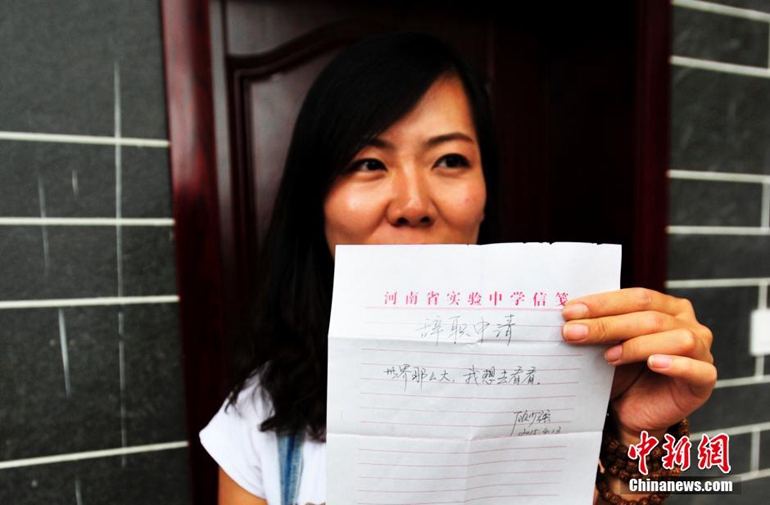 河南省实验中学信笺
辞职申请
世界那么大,我想去看看。
顾少强
2015.4.13
中新網
Chinanews.com